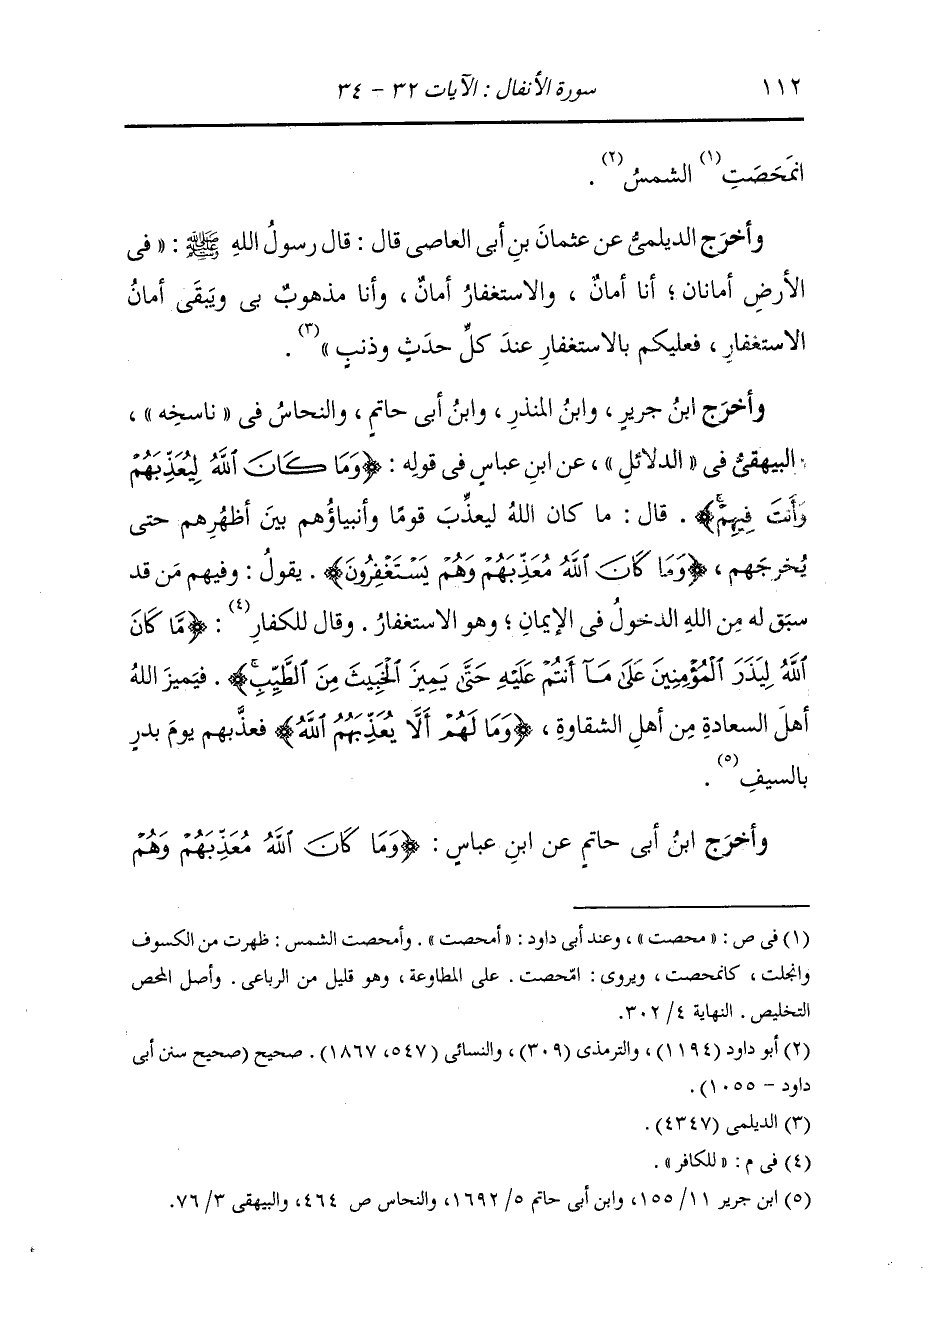 ١١٢ سورة الأنفال : الآيات ٣٢ - ٣٤
انمَحَصَتِ(١) الشمسُ(٢) .
وأخرَج الديلمىُّ عن عثمانَ بنِ أبى العاصى قال : قال رسولُ اللهِ ﷺ : « فى
الأرضِ أمانان ؛ أنا أمانٌ ، والاستغفارُ أمانٌ ، وأنا مذهوبٌ بى ويَبقَى أمانُ
الاستغفارِ ، فعليكم بالاستغفارِ عندَ كلِّ حدَثٍ وذنبٍ »(٣) .
وأخرَج ابنُ جريرٍ ، وابنُ المنذرِ ، وابنُ أبى حاتمٍ ، والنحاسُ فى « ناسخِه » ،
البيهقىُّ فى « الدلائلِ » ، عن ابنِ عباسٍ فى قولِه : ﴿وَمَا كَانَ ٱللَّهُ لِيُعَذِّبَهُمْ
وَأَنتَ فِيهِمْۚ﴾ . قال : ما كان اللهُ ليعذِّبَ قومًا وأنبياؤُهم بينَ أظهُرِهم حتى
يُخرجَهم ، ﴿وَمَا كَانَ ٱللَّهُ مُعَذِّبَهُمْ وَهُمْ يَسْتَغْفِرُونَ﴾ . يقولُ : وفيهم مَن قد
سبَق له مِن اللهِ الدخولُ فى الإيمانِ ؛ وهو الاستغفارُ . وقال للكفارِ(٤) : ﴿مَّا كَانَ
ٱللَّهُ لِيَذَرَ ٱلْمُؤْمِنِينَ عَلَىٰ مَآ أَنتُمْ عَلَيْهِ حَتَّىٰ يَمِيزَ ٱلْخَبِيثَ مِنَ ٱلطَّيِّبِۗ﴾ . فيَميزَ اللهُ
أهلَ السعادةِ مِن أهلِ الشقاوةِ ، ﴿وَمَا لَهُمْ أَلَّا يُعَذِّبَهُمُ ٱللَّهُ﴾ فعذَّبهم يومَ بدرٍ
بالسيفِ(٥) .
وأخرَج ابنُ أبى حاتمٍ عن ابنِ عباسٍ : ﴿وَمَا كَانَ ٱللَّهُ مُعَذِّبَهُمْ وَهُمْ
(١) فى ص : « محصت » ، وعند أبى داود : « أمحصت » . وأمحصت الشمس : ظهرت من الكسوف
وانجلت ، كانمحصت ، ويروى : امّحصت . على المطاوعة ، وهو قليل من الرباعى . وأصل المحص
التخليص . النهاية ٤/ ٣٠٢.
(٢) أبو داود (١١٩٤) ، والترمذى (٣٠٩) ، والنسائى (٥٤٧، ١٨٦٧) . صحيح (صحيح سنن أبى
داود - ١٠٥٥) .
(٣) الديلمى (٤٣٤٧) .
(٤) فى م : « للكافر » .
(٥) ابن جرير ١١/ ١٥٥، وابن أبى حاتم ٥/ ١٦٩٢، والنحاس ص ٤٦٤، والبيهقى ٣/ ٧٦.